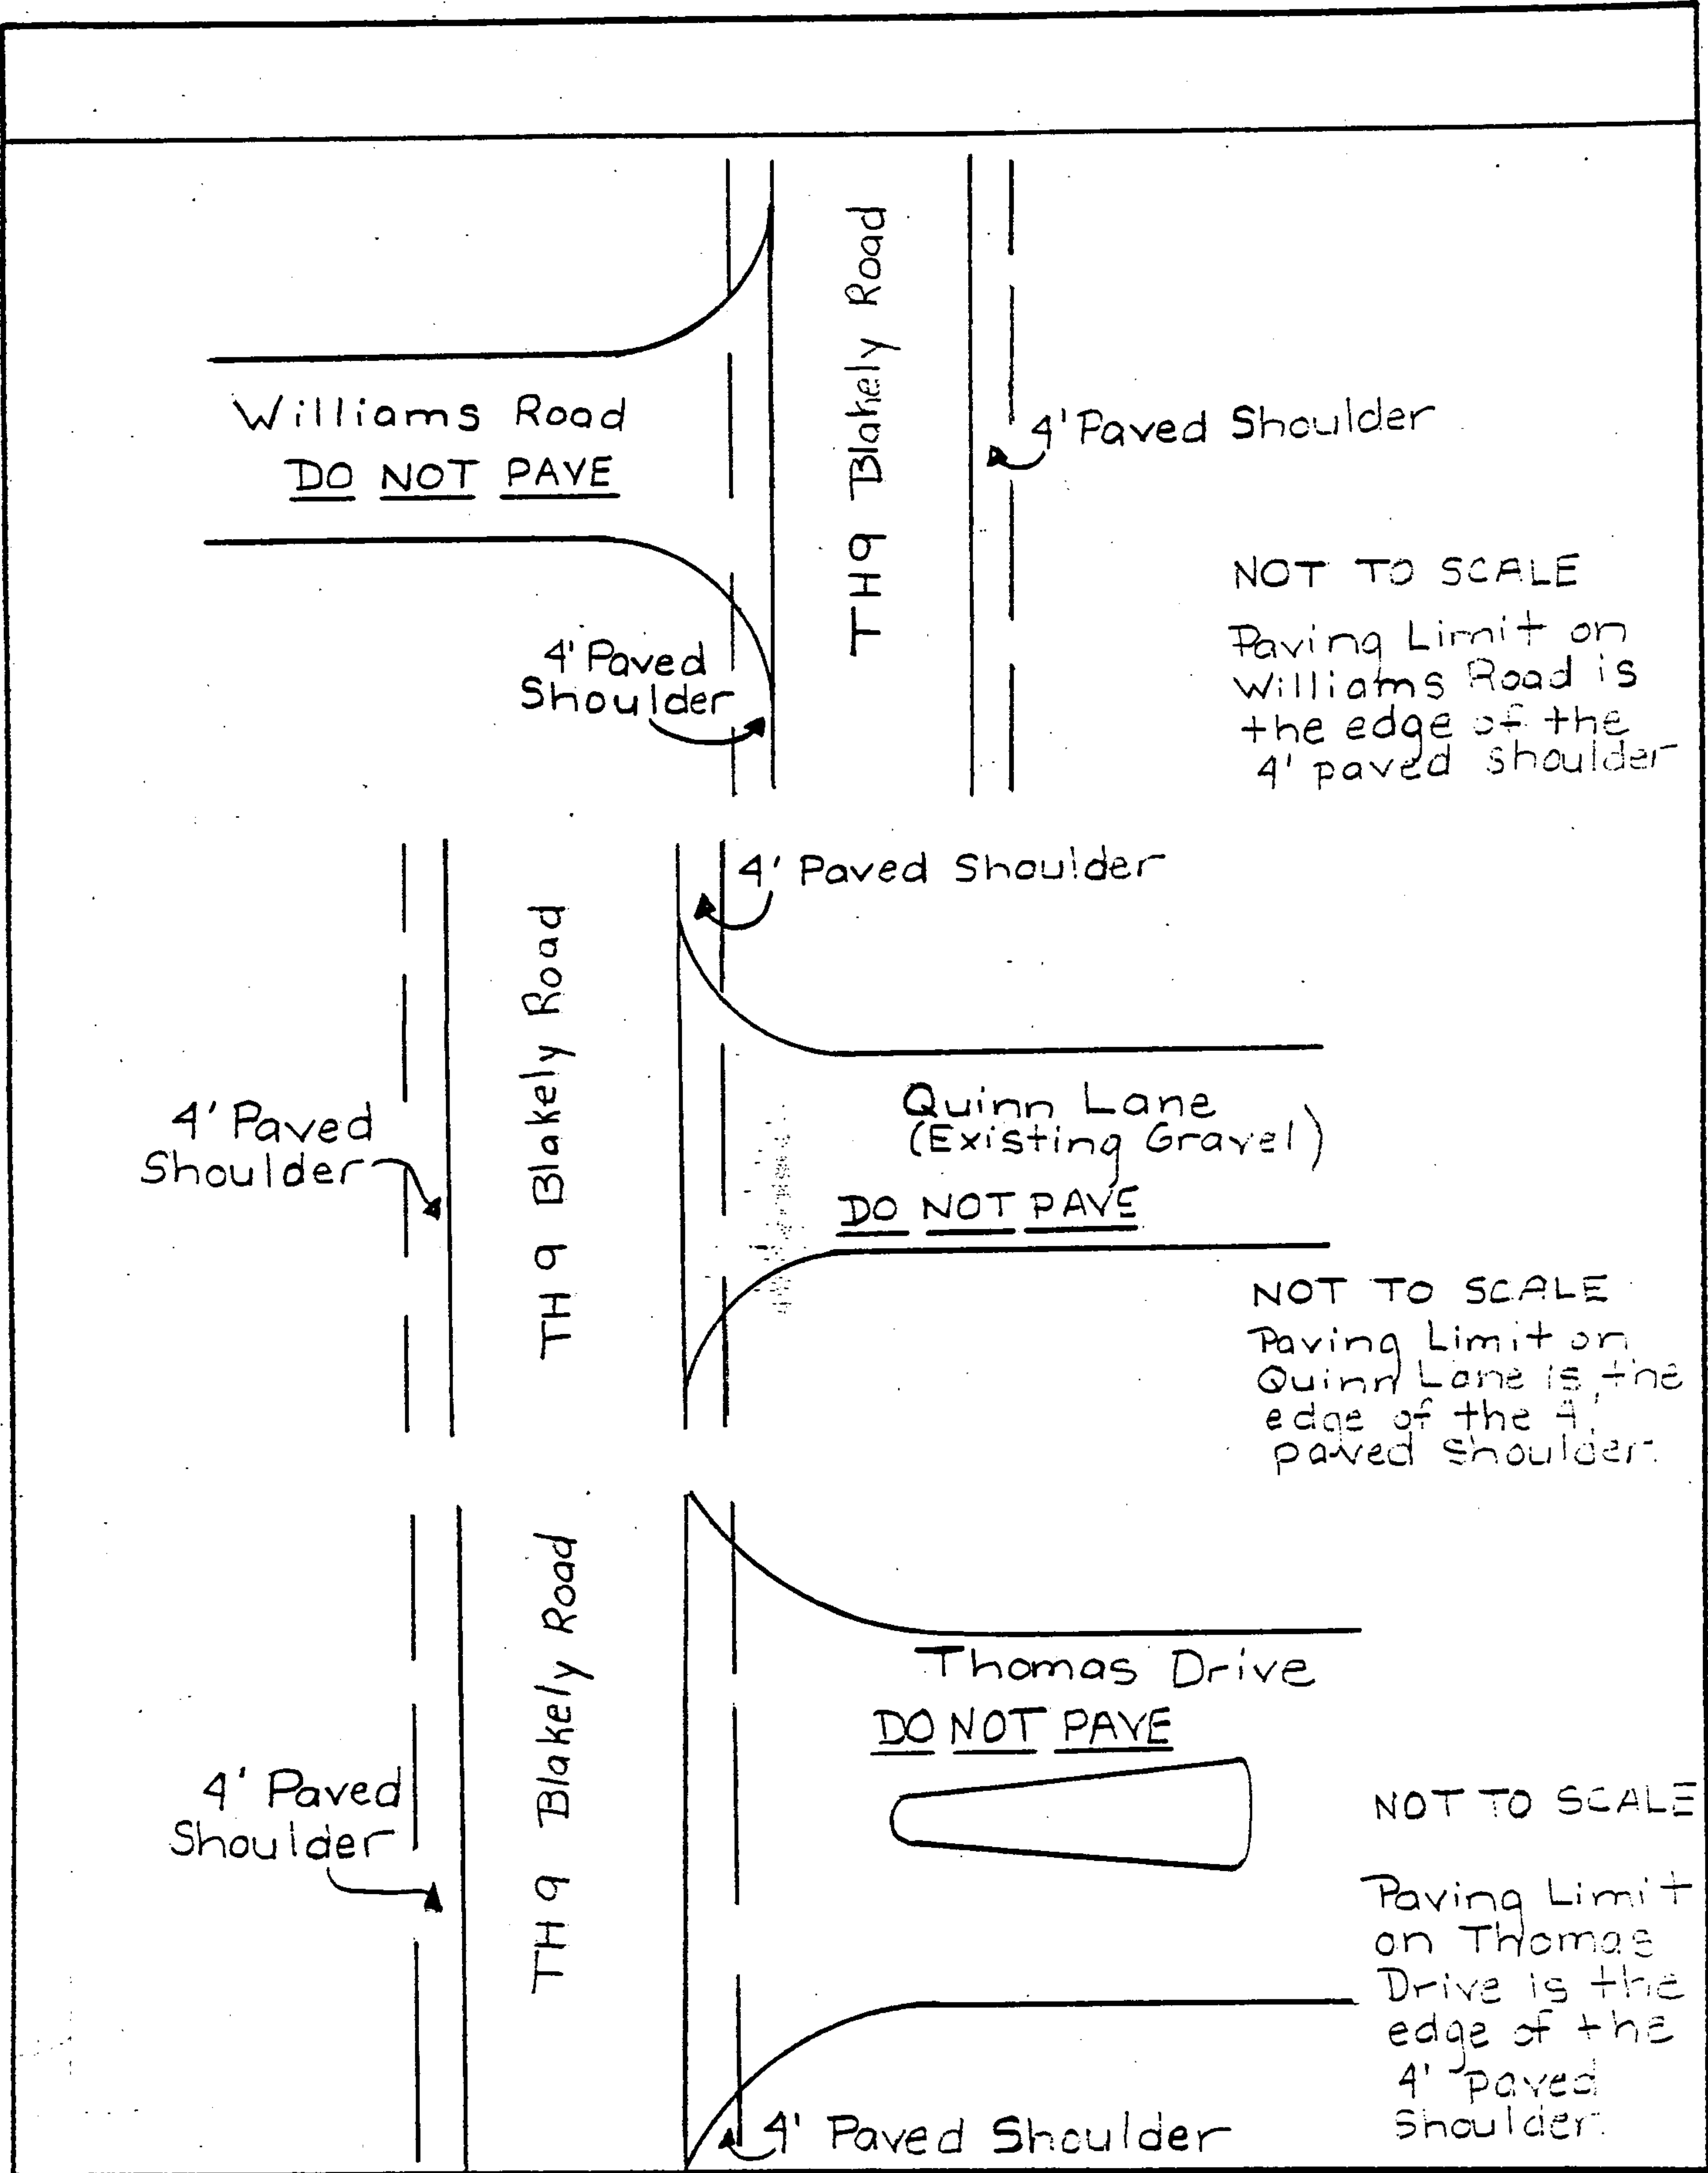 TH 9 Blakely Road
Williams Road
DO NOT PAVE
4' Paved Shoulder
4' Paved
Shoulder
NOT TO SCALE
Paving Limit on
Williams Road is
the edge of the
4' paved shoulder
4' Paved Shoulder
TH 9 Blakely Road
4' Paved
Shoulder
Quinn Lane
(Existing Gravel)
DO NOT PAVE
NOT TO SCALE
Paving Limit on
Quinn Lane is the
edge of the 4'
paved shoulder.
TH 9 Blakely Road
Thomas Drive
DO NOT PAVE
4' Paved
Shoulder
NOT TO SCALE
Paving Limit
on Thomas
Drive is the
edge of the
4' paved
shoulder.
4' Paved Shoulder